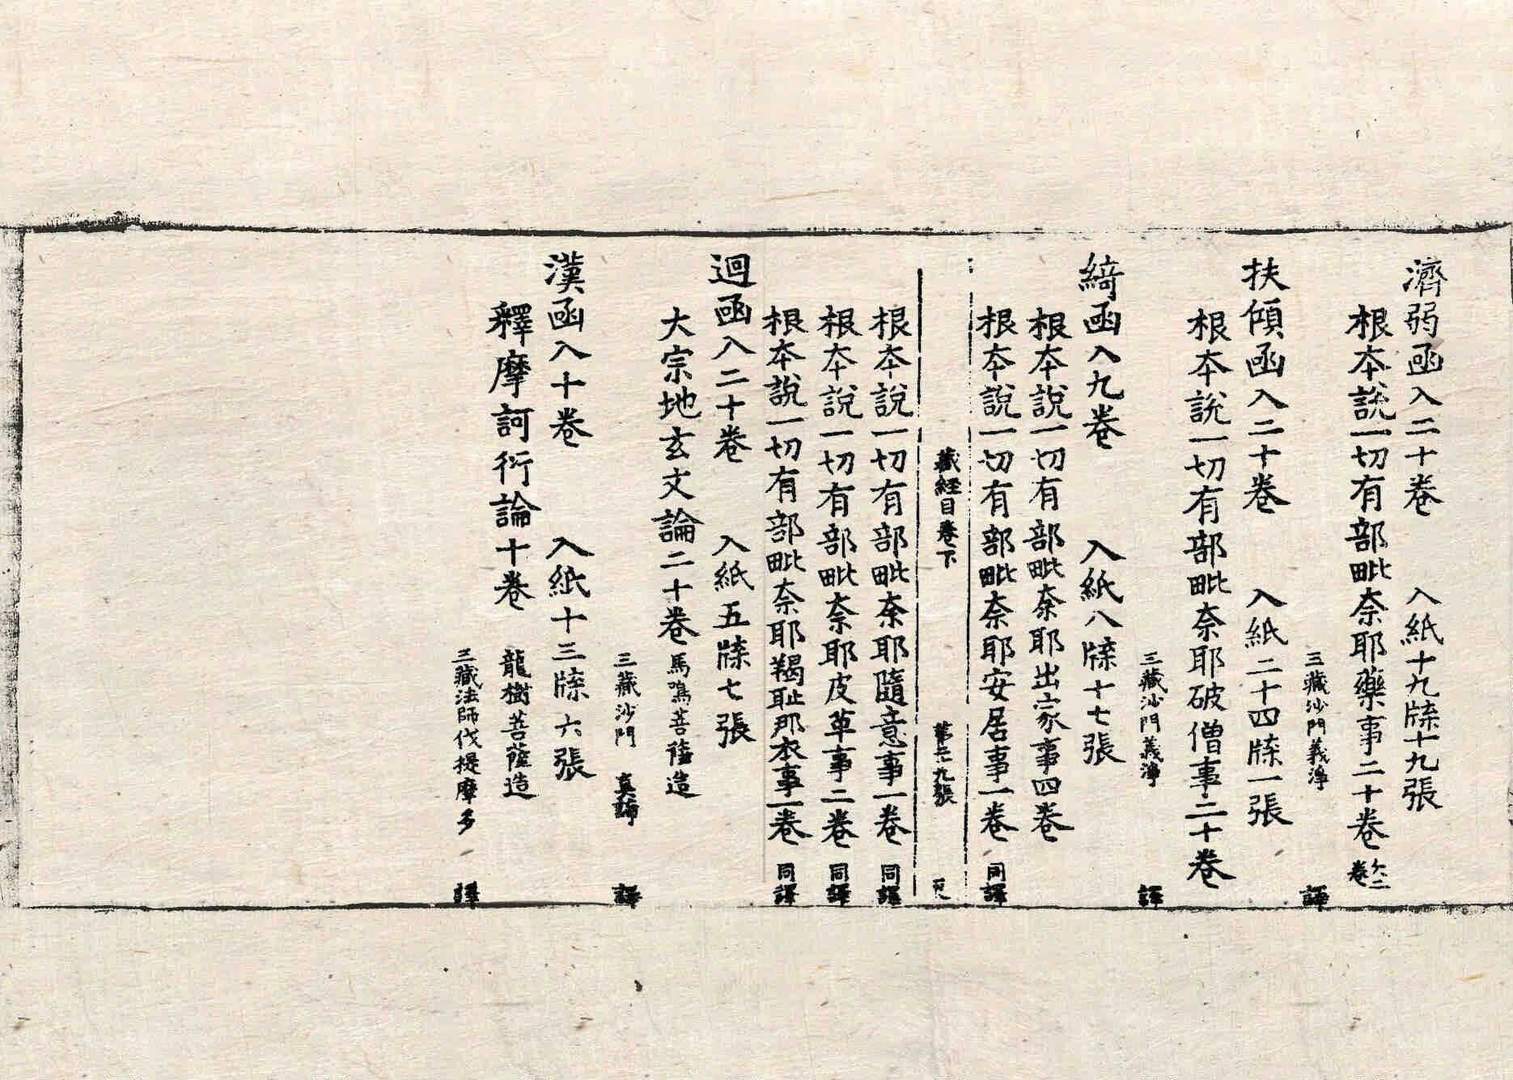 濟弱函入二十卷 入紙十九牒十九張
根本說一切有部毗奈耶藥事二十卷 欠二卷
三藏沙門義淨 譯
扶傾函入二十卷 入紙二十四牒一張
根本說一切有部毗奈耶破僧事二十卷
三藏沙門義淨 譯
綺函入九卷 入紙八牒十七張
根本說一切有部毗奈耶出家事四卷
根本說一切有部毗奈耶安居事一卷 同譯
藏經目卷下
根本說一切有部毗奈耶隨意事一卷 同譯
根本說一切有部毗奈耶皮革事二卷 同譯
根本說一切有部毗奈耶羯恥那衣事一卷 同譯
迴函入二十卷 入紙五牒七張
大宗地玄文論二十卷 馬鳴菩薩造
三藏沙門 真諦 譯
漢函入十卷 入紙十三牒六張
釋摩訶衍論十卷 龍樹菩薩造
三藏法師伐提摩多 譯